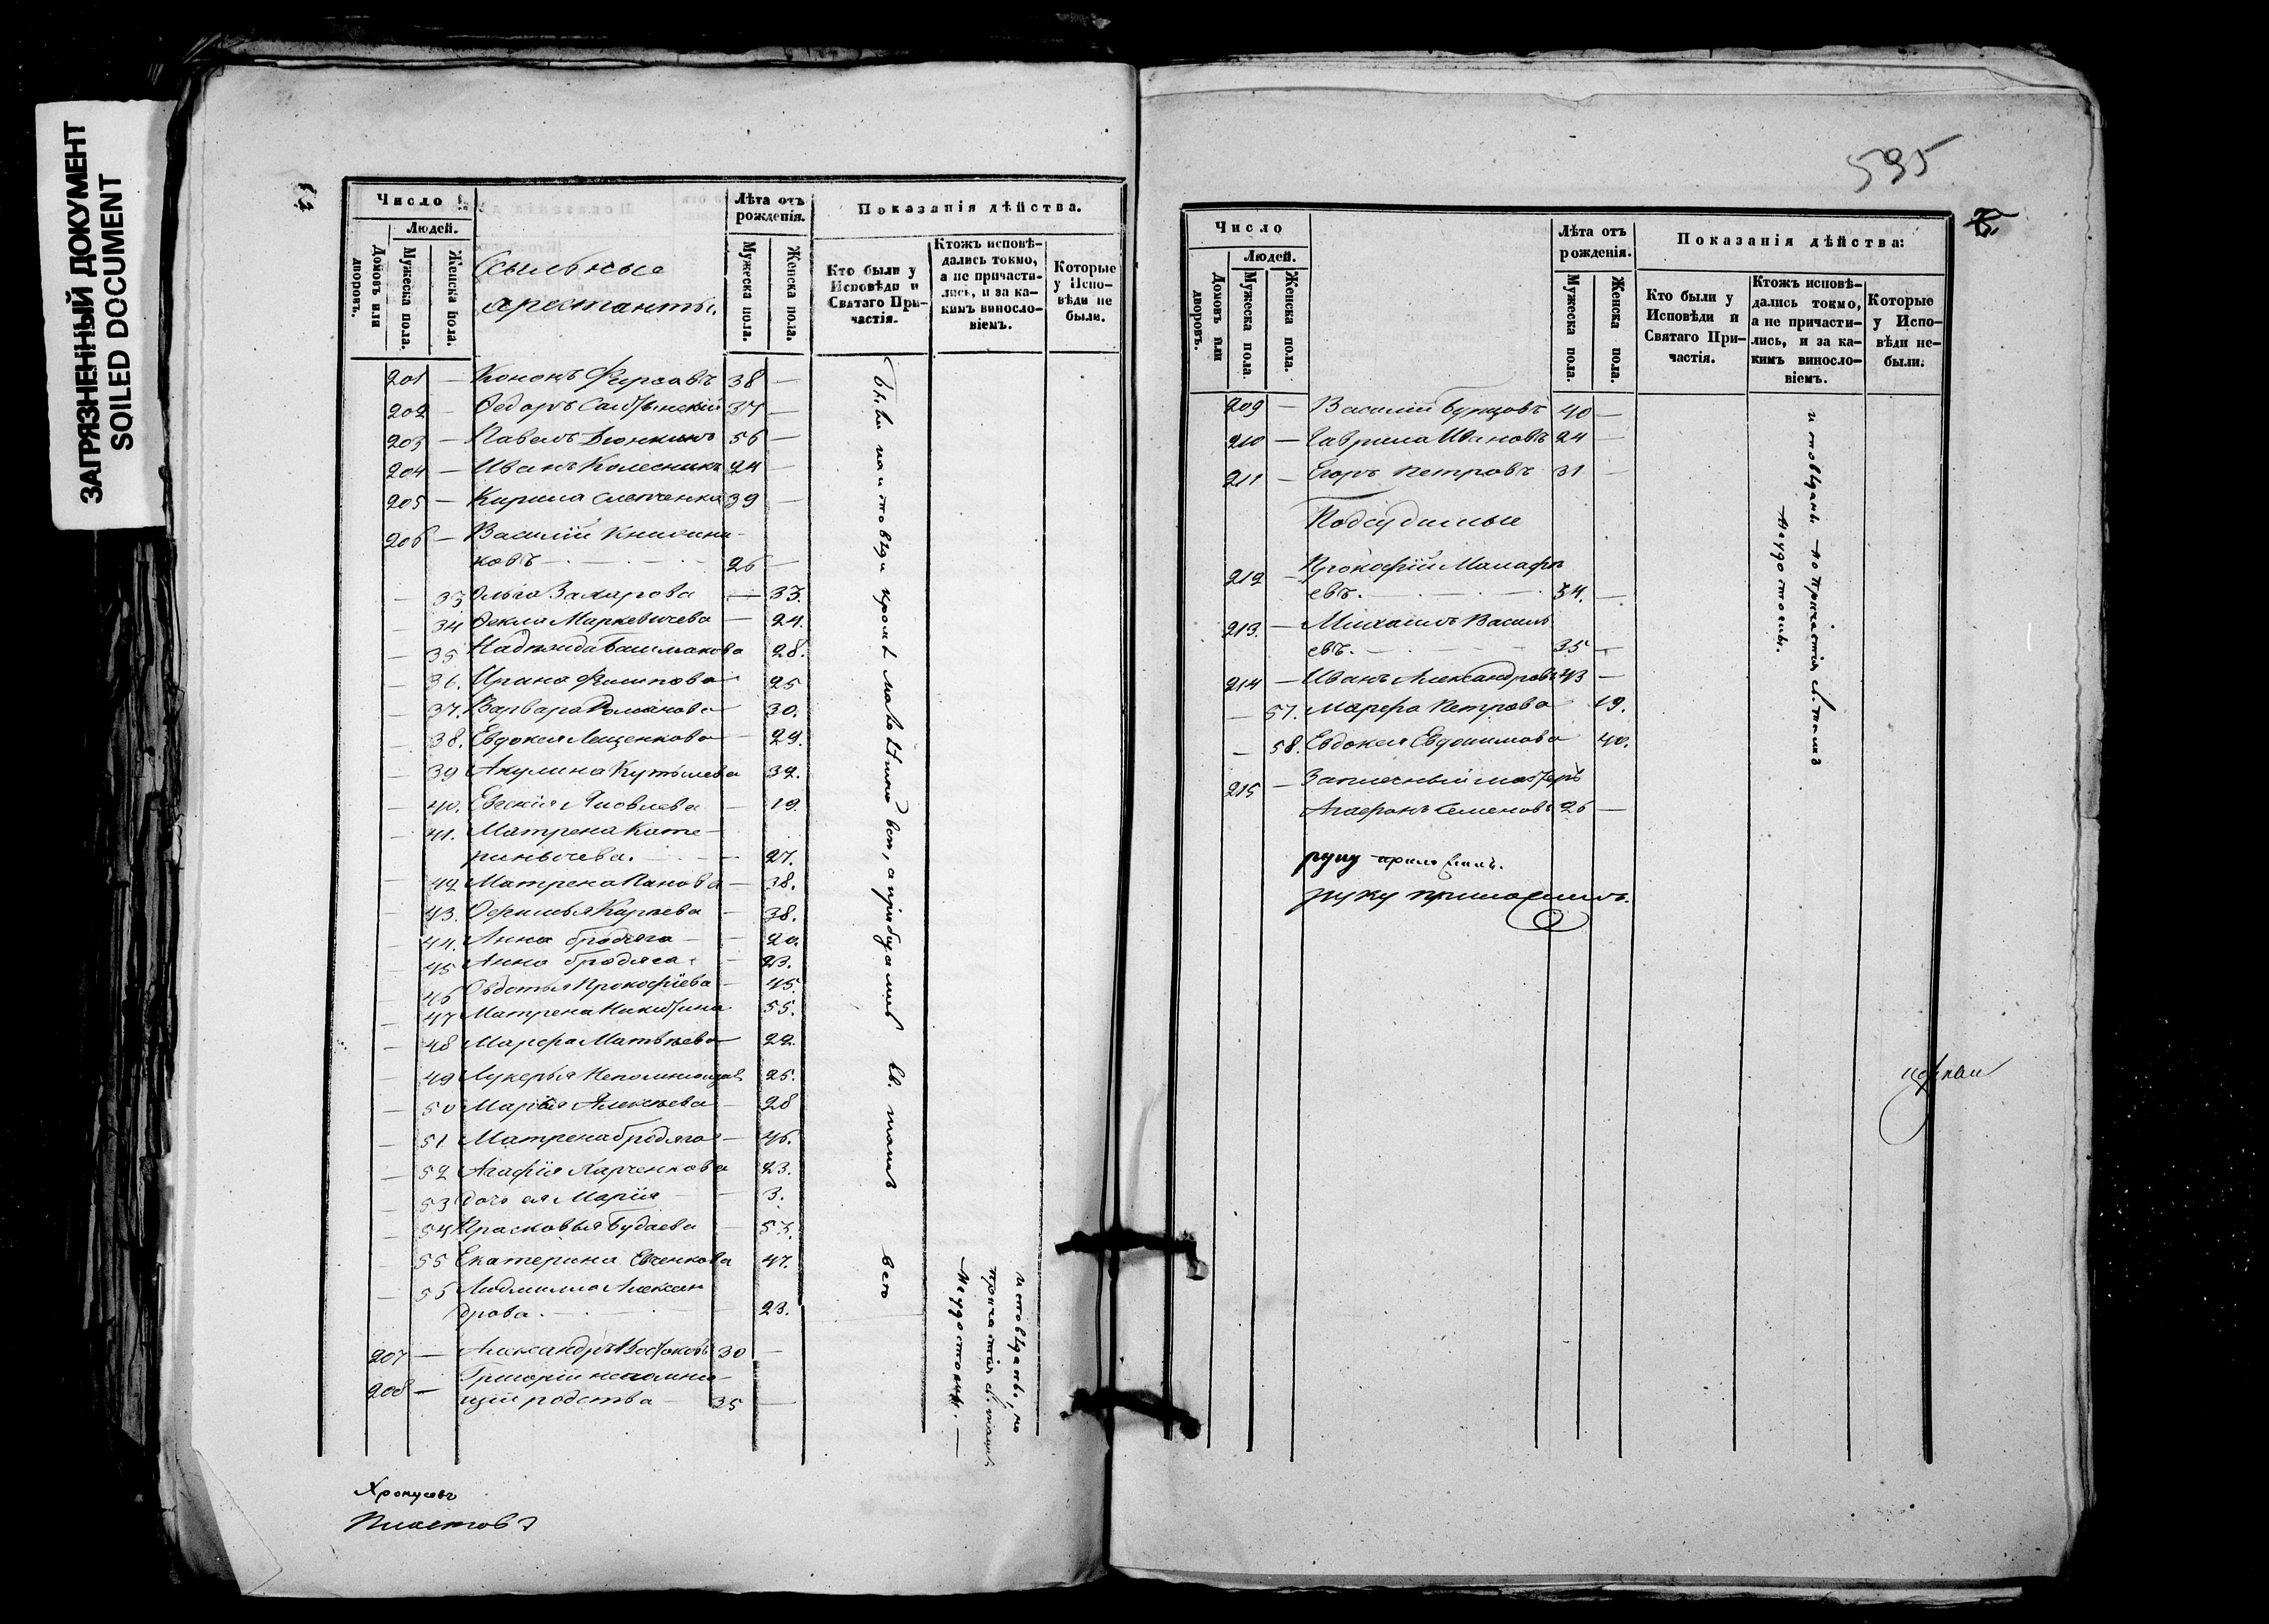 ЗАГРЯЗНЕННЫЙ ДОКУМЕНТ
SOILED DOCUMENT
Число
Людей.
Домовъ или дворовъ.
Мужеска пола.
Женска пола.
Ссыльные
арестанты.
Лѣта отъ рожденія.
Мужеска пола.
Женска пола.
Показанія дѣйства.
Кто были у Исповѣди и Святаго Причастія.
Ктожъ исповѣдались токмо, а не причастились, и за какимъ винословіемъ.
Которые у Исповѣди не были.
201 — Кононъ Фирсовъ 38 —
202 — Федоръ 37 —
203 — Павелъ 56 —
204 — Иванъ Колесникъ 24 —
205 — Кирила 39 —
206 — Василій
ковъ — 26 —
— 33 Ольга Захарова — 33.
— 34 Фекла Маркевичева — 24.
— 35 Надежда Башмакова 28.
— 36. Ирина Филипова 25
— 37. Варвара Романова 30.
— 38. Евдокея Лещенкова 29.
— 39 Акулина Кутылева 32.
— 40. Яковлева — 19.
— 41. Матрена Кате-
риничева. — 27.
— 42 Матрена Панова — 38.
— 43. Карпева — 38.
— 44. Анна бродяга — 20.
— 45 Анна бродяга — 23.
— 46 Овдотья Прокофіева — 45.
— 47 Матрена Никитина 55.
— 48 Марфа Матвѣева 22.
— 49 Лукерья Непомнющая 25.
— 50 Марья Алексѣева 28
— 51 Матрена бродяга — 46.
— 52 Агафія Харченкова 23.
— 53 дочь ея Марія — 3.
— 54 Прасковья Будаева — 53.
— 55 Екатерина Евченкова 47.
— 55 Людмилла Алексан
дрова. — 23.
207 — Александръ Востоковъ 30 —
208 — Григорій непомня-
щій родства — 35 —
были на исповѣди кромѣ малолѣтнихъ всѣ, а пріобщались св. таинъ всѣ
исповѣданъ, но
причастія св. таинъ
не удостоенъ. —
Хропусовъ
Пластовъ
595
Число
Людей.
Домовъ или дворовъ.
Мужеска пола.
Женска пола.
Лѣта отъ рожденія.
Мужеска пола.
Женска пола.
Показанія дѣйства:
Кто были у Исповѣди и Святаго Причастія.
Ктожъ исповѣдались токмо, а не причастились, и за какимъ винословіемъ.
Которые у Исповѣди не были.
209 — Василій Бурцовъ 40 —
210 — Гаврила Ивановъ 24 —
211 — Егоръ Петровъ 31 —
Подсудимые
212 — Прокофій Малафе
евъ. — 34. —
213. — Михаилъ Василь
евъ. — 35 —
214 — Иванъ Александровъ 43 —
— 57. Марфа Петрова 49.
— 58. Евдокея Евдокимова 40.
215 — Заплечный мастеръ
Агафонъ Семеновъ 26 —
исповѣданъ но причастія св. таинъ
не удостоены.
руку приложилъ.
руку приложилъ.
церкви